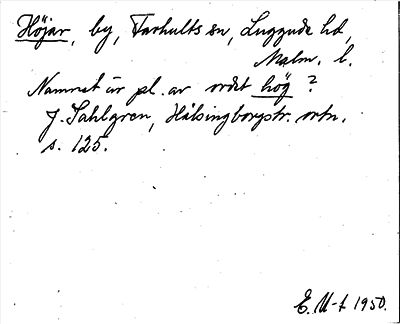 Höjar, by, Farhults sn, Luggude hd,
Malm. l.
Namnet är pl. av ordet hög?
J. Sahlgren, Hälsingborgstr. ortn.
s. 125.
E. U-t 1950.